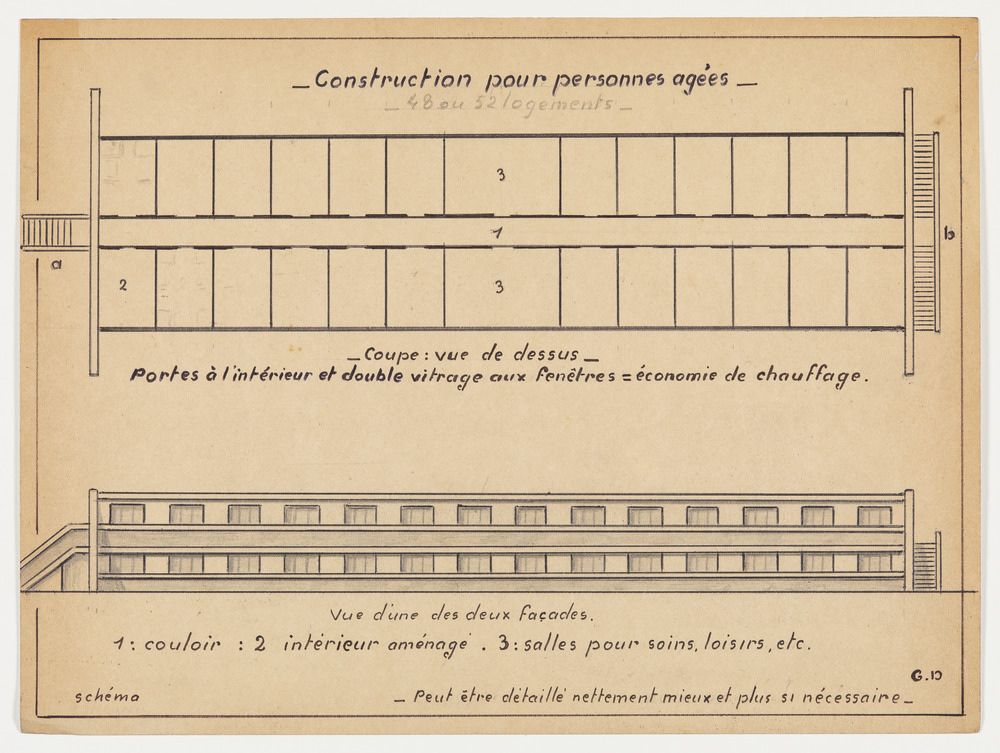 _ Construction pour personnes agées _
_ 48 ou 52 logements _
3
1
a
b
2
3
_ Coupe : vue de dessus _
Portes à l'intérieur et double vitrage aux fenêtres = économie de chauffage.
Vue d'une des deux façades.
1 : couloir : 2 intérieur aménagé . 3 : salles pour soins, loisirs, etc.
G.D
schéma
_ Peut être détaillé nettement mieux et plus si nécessaire _